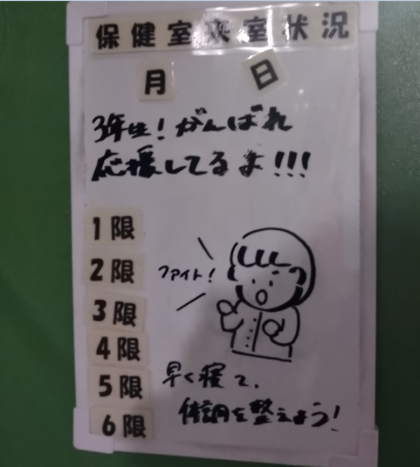 保健室来室状況
月 日
3年生！がんばれ
応援してるよ!!!
1限
2限
ファイト！
3限
4限
5限
6限
早く寝て、
体調を整えよう！